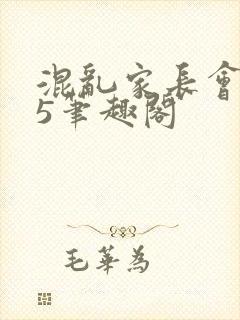 混亂家長會
5筆趣閣
毛華為